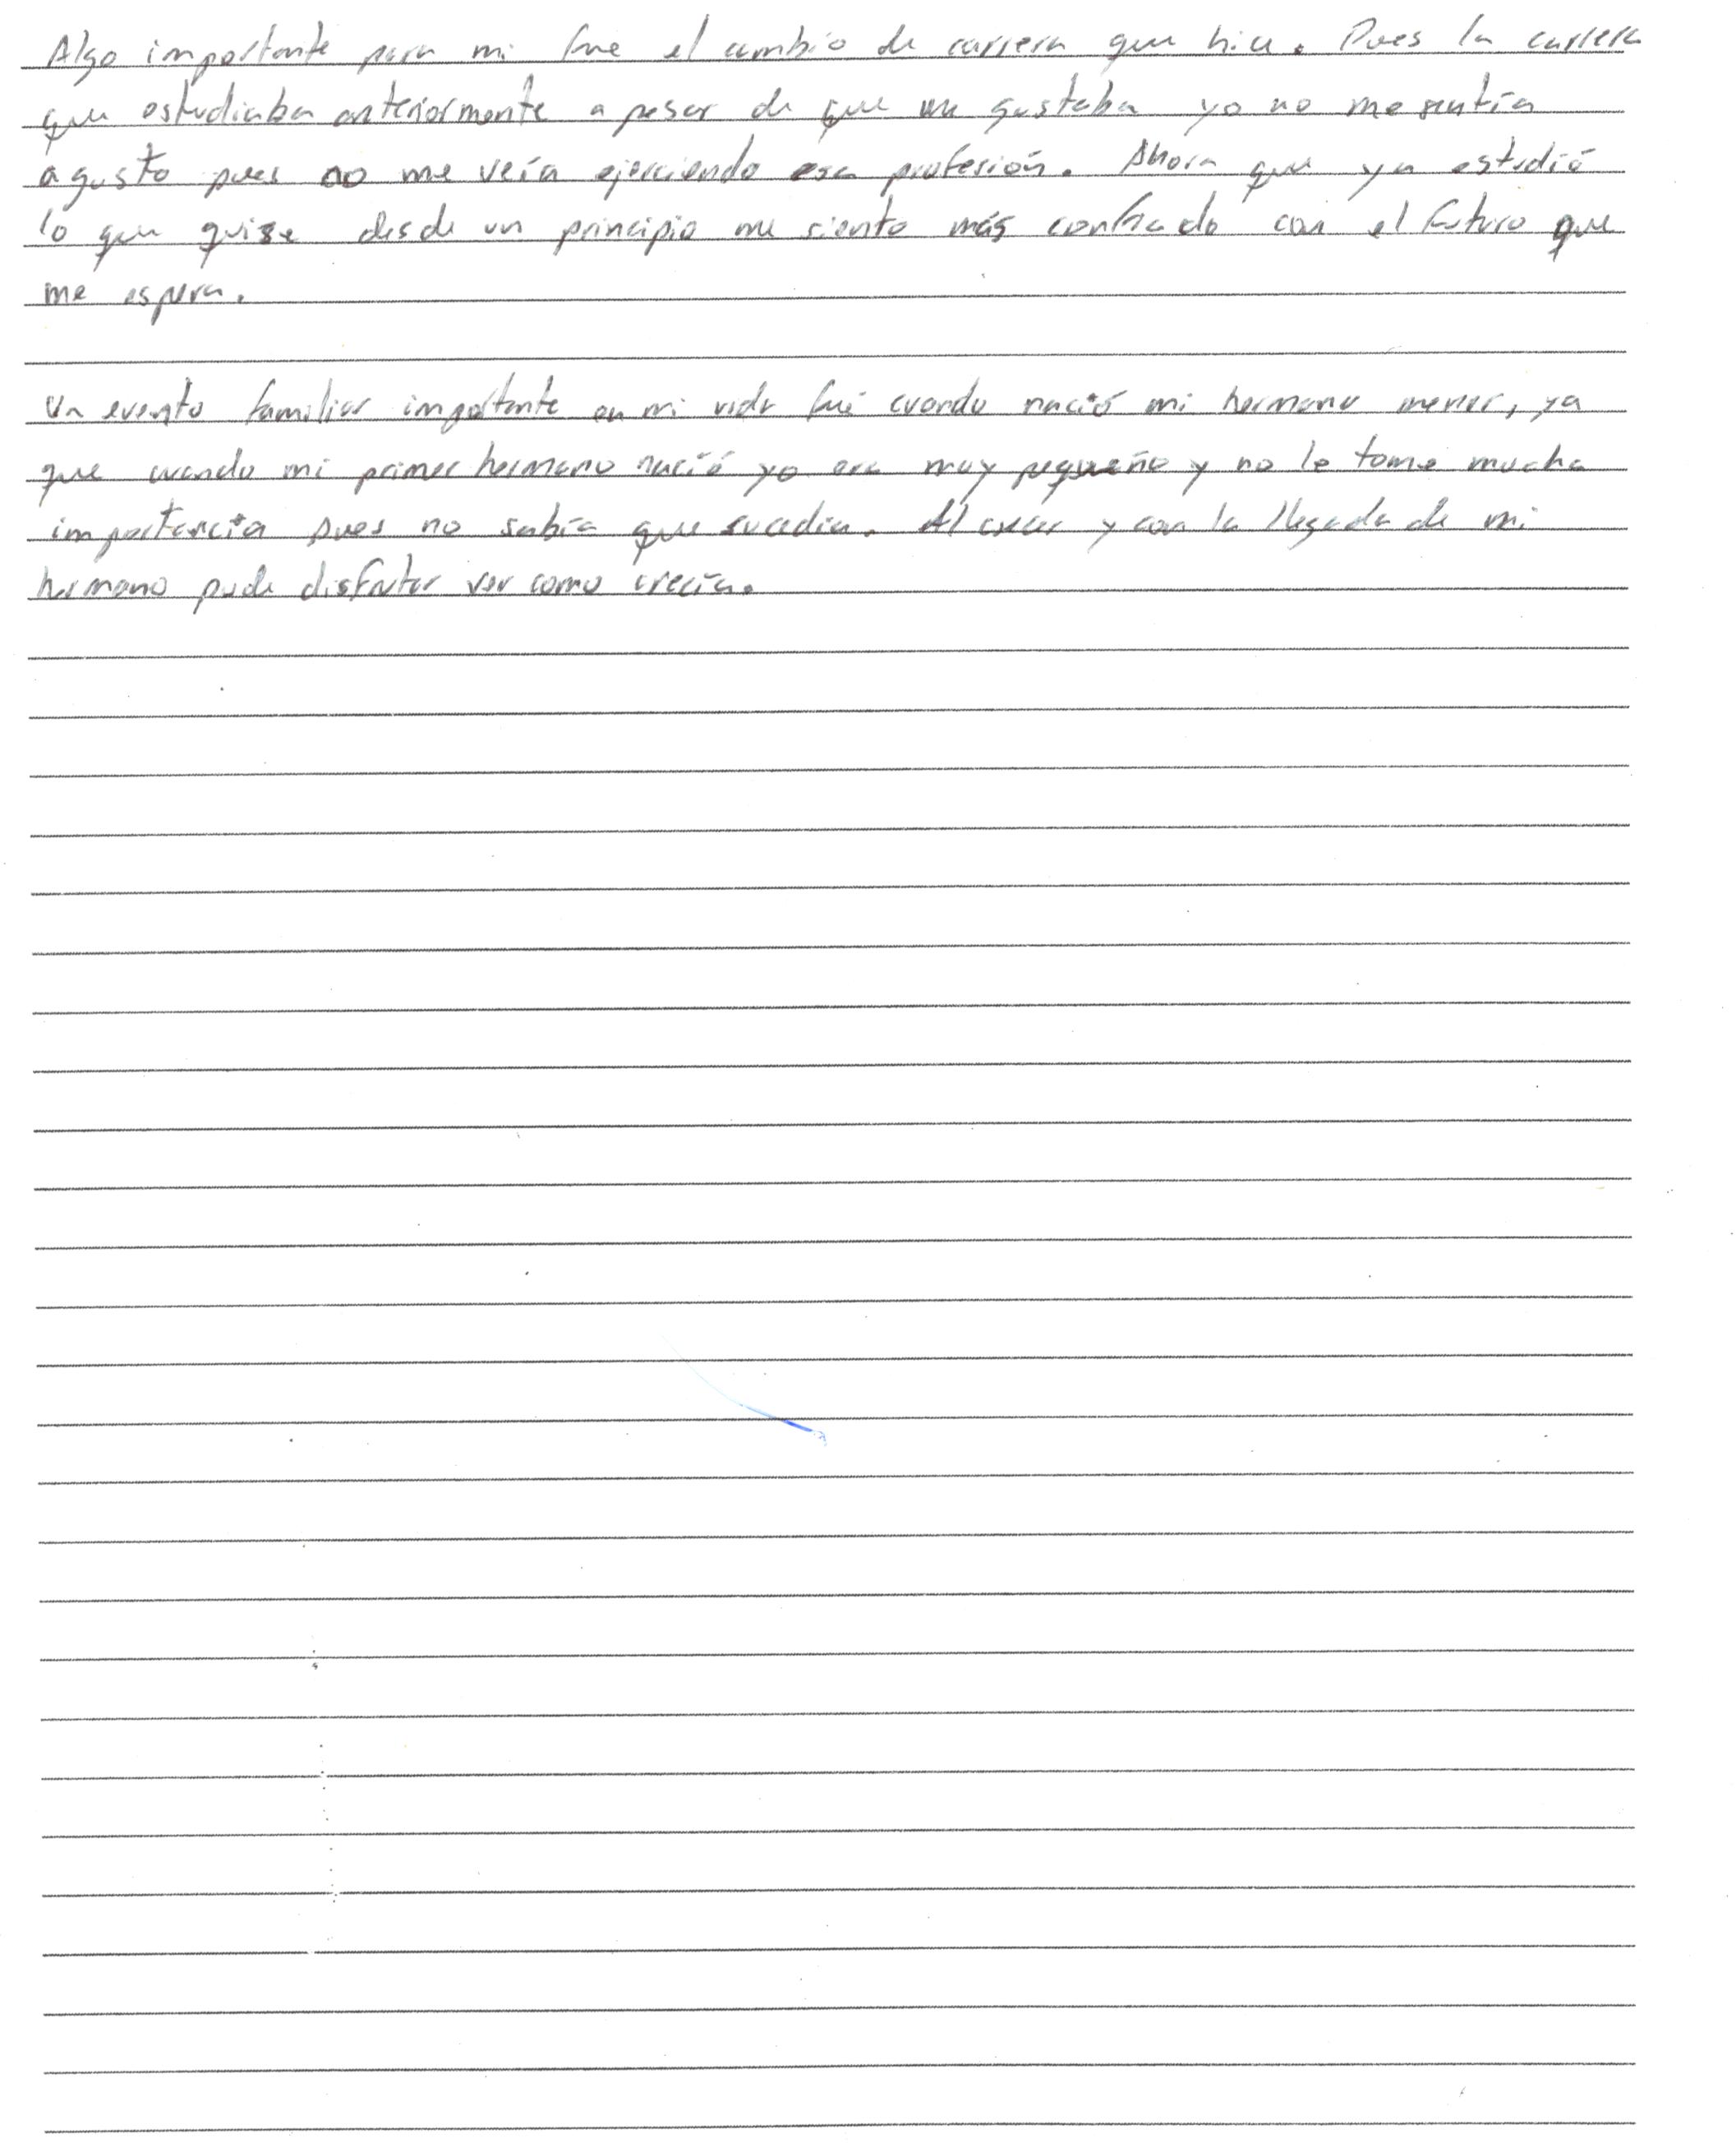 Algo importante para mi fue el cambio de carrera que hice. Pues la carrera
que estudiaba anteriormente a pesar de que me gustaba yo no me sentía
agusto pues no me veía ejerciendo esa profesión. Ahora que ya estudió
lo que quise desde un principio me siento más confiado con el futuro que
me espera.
Un evento familiar importante en mi vida fué cuando nació mi hermano menor, ya
que cuando mi primer hermano nació yo era muy pequeño y no le tome mucha
importancia pues no sabía que sucedia. Al crecer y con la llegada de mi
hermano pude disfrutar ver como crecía.